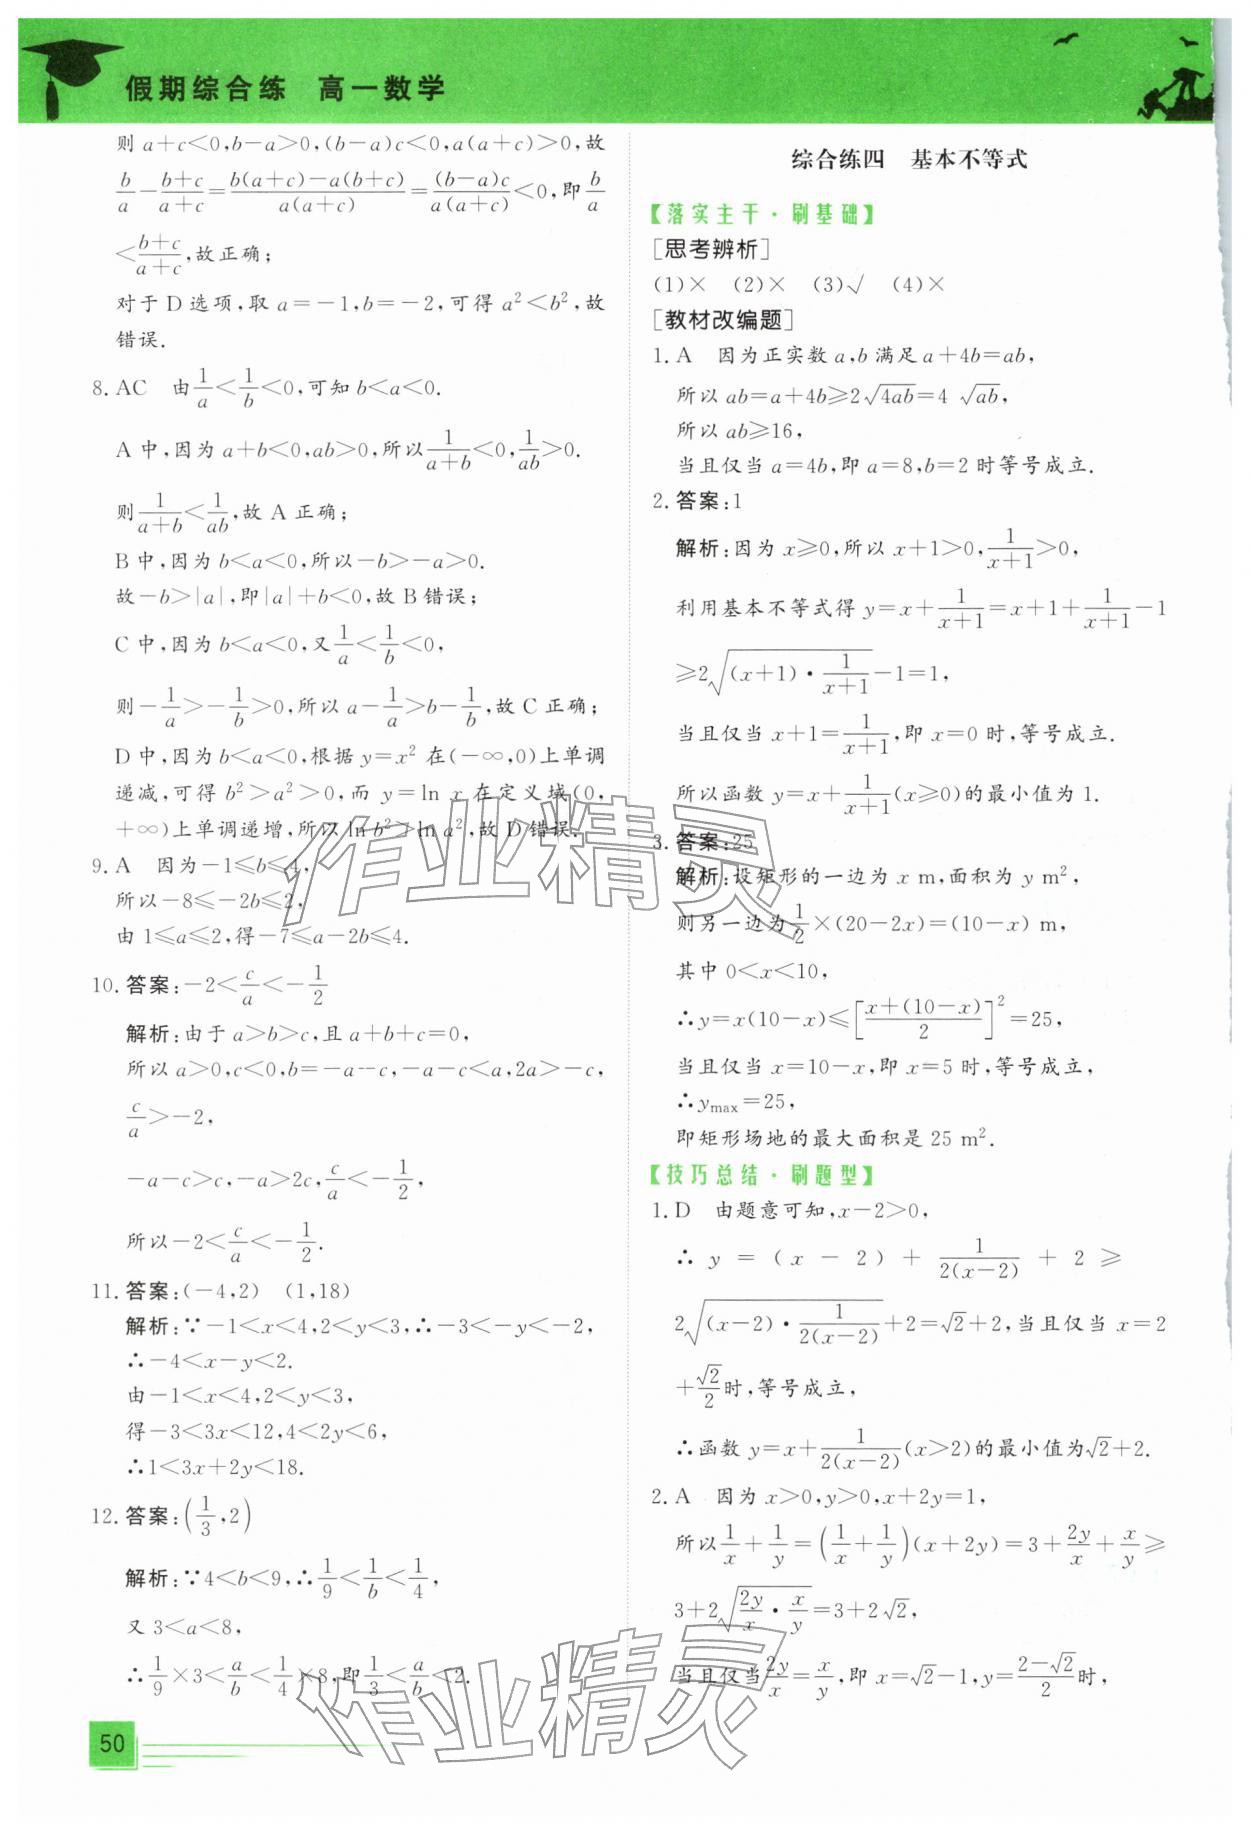 假期综合练 高一数学
则a+c<0,b-a>0,(b-a)c<0,a(a+c)>0,故
b/a-(b+c)/(a+c)=[b(a+c)-a(b+c)]/[a(a+c)]=(b-a)c/[a(a+c)]<0,即b/a
<(b+c)/(a+c),故正确;
对于D选项,取a=-1,b=-2,可得a²<b²,故
错误.
8. AC 由1/a<1/b<0,可知b<a<0.
A中,因为a+b<0,ab>0,所以1/(a+b)<0,1/(ab)>0.
则1/(a+b)<1/(ab),故A正确;
B中,因为b<a<0,所以-b>-a>0.
故-b>|a|,即|a|+b<0,故B错误;
C中,因为b<a<0,又1/a<1/b<0,
则-1/a>-1/b>0,所以a-1/a>b-1/b,故C正确;
D中,因为b<a<0,根据y=x²在(-∞,0)上单调
递减,可得b²>a²>0,而y=ln x在定义域(0,
+∞)上单调递增,所以ln b²>ln a²,故D错误.
9. A 因为-1≤b≤4,
所以-8≤-2b≤2,
由1≤a≤2,得-7≤a-2b≤4.
10. 答案:-2<c/a<-1/2
解析:由于a>b>c,且a+b+c=0,
所以a>0,c<0,b=-a-c,-a-c<a,2a>-c,
c/a>-2,
-a-c>c,-a>2c,c/a<-1/2,
所以-2<c/a<-1/2.
11. 答案:(-4,2) (1,18)
解析:∵-1<x<4,2<y<3,∴-3<-y<-2,
∴-4<x-y<2.
由-1<x<4,2<y<3,
得-3<3x<12,4<2y<6,
∴1<3x+2y<18.
12. 答案:(1/3,2)
解析:∵4<b<9,∴1/9<1/b<1/4,
又3<a<8,
∴1/9×3<a/b<1/4×8,即1/3<a/b<2.
50
综合练四 基本不等式
【落实主干·刷基础】
[思考辨析]
(1)× (2)× (3)√ (4)×
[教材改编题]
1. A 因为正实数a,b满足a+4b=ab,
所以ab=a+4b≥2√(4ab)=4√(ab),
所以ab≥16,
当且仅当a=4b,即a=8,b=2时等号成立.
2. 答案:1
解析:因为x≥0,所以x+1>0,1/(x+1)>0,
利用基本不等式得y=x+1/(x+1)=x+1+1/(x+1)-1
≥2√((x+1)·1/(x+1))-1=1,
当且仅当x+1=1/(x+1),即x=0时,等号成立.
所以函数y=x+1/(x+1)(x≥0)的最小值为1.
3. 答案:25
解析:设矩形的一边为x m,面积为y m²,
则另一边为1/2×(20-2x)=(10-x) m,
其中0<x<10,
∴y=x(10-x)≤[(x+(10-x))/2]²=25,
当且仅当x=10-x,即x=5时,等号成立,
∴ymax=25,
即矩形场地的最大面积是25 m².
【技巧总结·刷题型】
1. D 由题意可知,x-2>0,
∴y=(x-2)+1/[2(x-2)]+2≥
2√((x-2)·1/[2(x-2)])+2=√2+2,当且仅当x=2
+√2/2时,等号成立,
∴函数y=x+1/[2(x-2)](x>2)的最小值为√2+2.
2. A 因为x>0,y>0,x+2y=1,
所以1/x+1/y=(1/x+1/y)(x+2y)=3+2y/x+x/y≥
3+2√(2y/x·x/y)=3+2√2,
当且仅当2y/x=x/y,即x=√2-1,y=(2-√2)/2时,
作业精灵
作业精灵